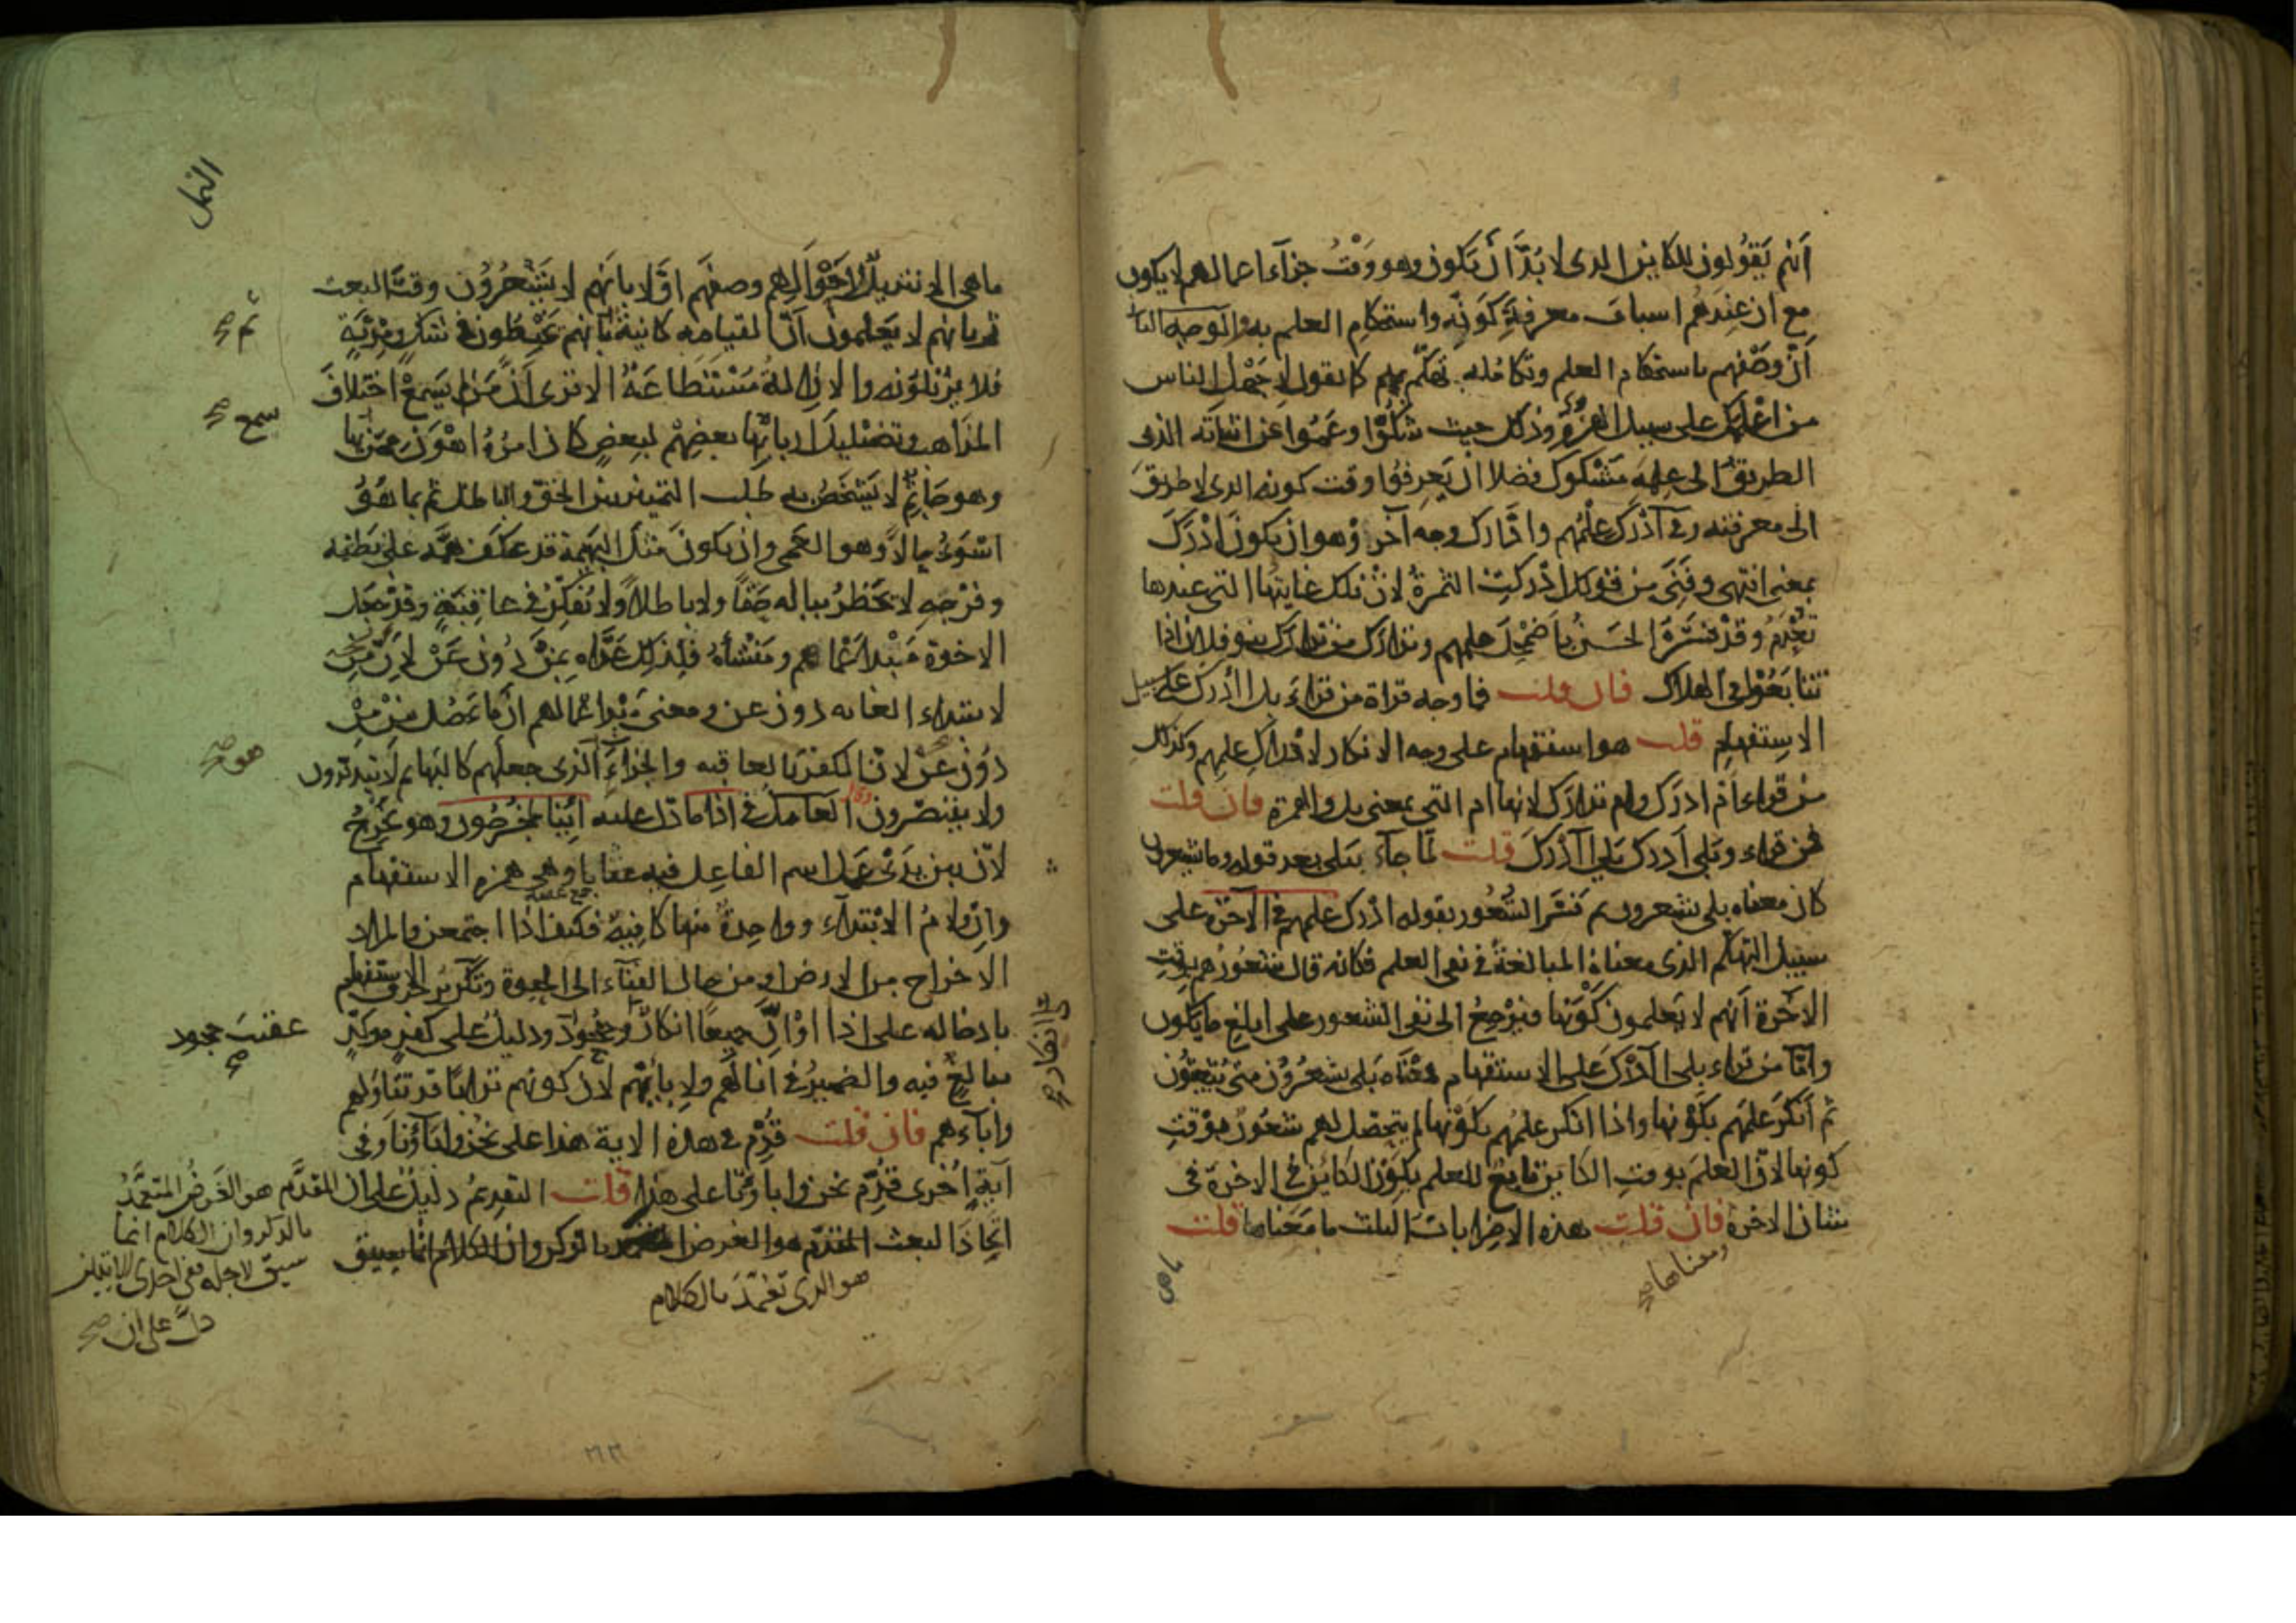 أنهم يقولون للكاين الذى لا بدّ أن تكون وهو وقت جزآء اعمالهم لا يكون
مع ان عندهم اسباب معرفة كونه واستحكام العلم به والوجه الثانى
أنّ وصفهم باستحكام العلم وتكامله تهكّم بهم كما تقول لاجهل الناس
من اعلمك على سبيل الهزؤ وذلك حيث شكّوا وعموا عن اثباته الذى
الطريق الى علمه مشكوك فضلا ان يعرفوا وقت كونه الذى لا طريق
الى معرفته وفى أدّرك علمهم وادّارك وجه آخر وهو ان يكون ادرك
بمعنى انتهى وفنى من قولك ادركت الثمرة لانّ تلك غايتها التى عندها
تعدم وقد فسّره الحسن باضمحل علمهم وتدارك من تدارك بنو فلان اذا
تتابعوا فى الهلاك فان قلت فما وجه قراة من قراء بل أأدرك على سبيل
الاستفهام قلت هو استفهام على وجه الانكار لادراك علمهم وكذلك
من قراء ام ادرك وام تدارك لانها ام التى بمعنى بل والهمزة فان قلت
فمن قراء وبلى أدرك بلى أأدرك قلت لمّا جآء ببلى بعد قوله وما يشعرون
كان معناه بلى يشعرون ثم فسّر الشعور بقوله ادرك علمهم فى الآخرة على
سبيل التهكّم الذى معناه المبالغة فى نفى العلم فكانه قال شعورهم بوقت
الآخرة أنهم لا يعلمون كونها فيرجع الى نفى الشعور على ابلغ ما يكون
وامّا من قراء بلى أأدرك على الاستفهام فمعناه بلى يشعرون متى يبعثون
ثم أنكر علمهم بكونها واذا انكر علمهم بكونها لم يتحصل لهم شعور بوقت
كونها لانّ العلم بوقت الكاين تابع للعلم بكون الكائن فى الاخرة فى
شان الاخرة فان قلت هذه الاضرابات الثلث ما معناها قلت
ومعناها صح
ما هى
النمل
ما هى الا تنزيل لاحوالهم وصفهم اوّلا بانهم لا يشعرون وقت البعث
ثم بانهم لا يعلمون أنّ القيامه كائنة بانهم يخبطون فى شك ومرية
ثم صح
فلا يزيلونه والازالة مستطاعة الا ترى أنّ من لم يسمع اختلاف
سمع صح
المذاهب وتضليل اربابها بعضهم لبعض كان امره اهون ممن سمع بها
وهو جاثم لا يشخص به طلب التمييز بين الحق والباطل ثم بما هو
اسوء حالا وهو العمى وان يكون مثل البهيمة قد عكف همّه على بطنه
وفرجه لا يخطر بباله حقا ولا باطلا ولا يفكّر فى عاقبة وقد جعل
الاخرة مبدا عماهم ومنشأه فلذلك عدّاه بمن دون عن لانّ من
لابتداء الغايه دون عن ومعنى
دون عن لانّ الكفر بالعاقبه والجزاء الذى جعلهم كالبهايم لا يتدبّرون
هو صح
ولا يتبصّرون العامل فى اذا ما دل عليه ائنا لمخرجون وهو نخرج
لانّ بين يدى عمل اسم الفاعل فيه عقابا وهى همزه الاستفهام
جمع عقبة
وانّ ولام الابتداء وواحدة منها كافية فكيف اذا اجتمعن والمراد
الاخراج من الارض او من حال الفناء الى الحيوة وتكرير حرف الاستفهام
بادخاله على اذا او انّ جميعا انكار وجحود ودليل على كفر موكّد
عقيب جحود صح
على انكار صح
مبالغ فيه والضمير فى أئنا لهم ولابائهم لان كونهم ترابا قد تناولهم
وآباءهم فان قلت قدّم فى هذه الاية هذا على نحن وابآؤنا وفى
آية اخرى قدّم نحن واباؤنا على هذا قلت التقديم دليل على ان المقدّم هو الغرض المتعمّد
بالذكر وان الكلام انما
سيق لاجله ففى احدى الايتين
دلّ على ان صح
اتّخاذ البعث المقدّم هو الغرض المتعمد بالذكر وان الكلام انّما سيق
هو الذى تعمّد بالكلام